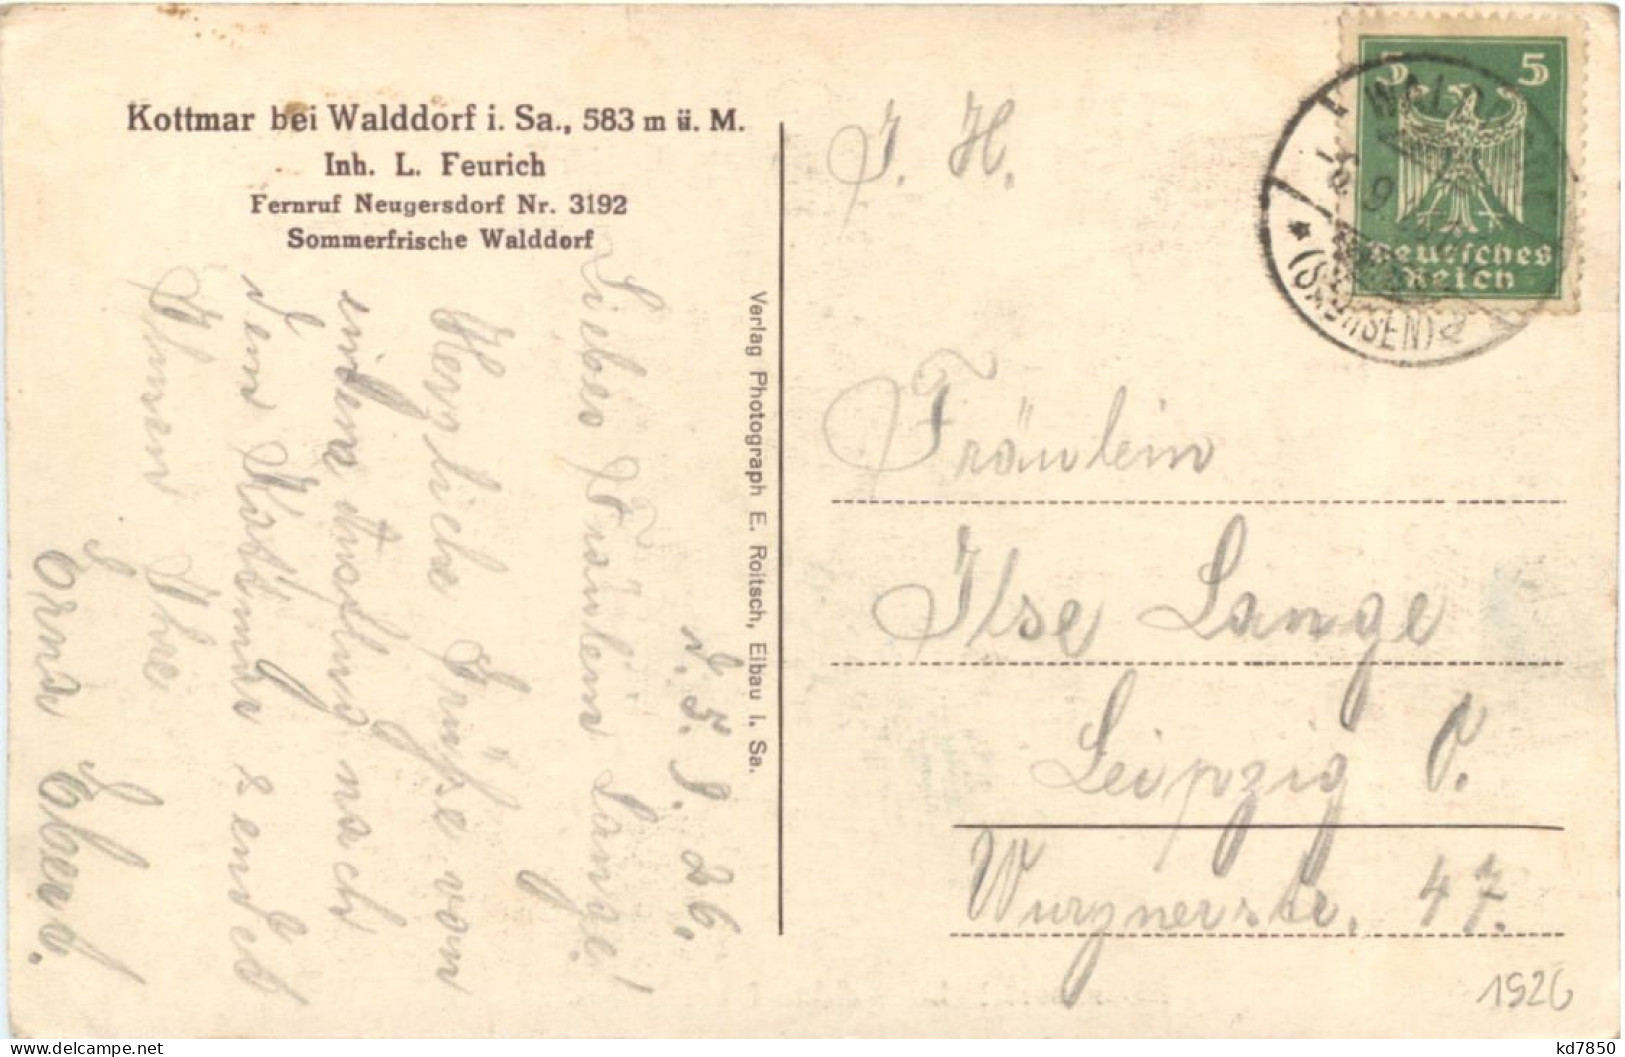 Kottmar bei Walddorf i. Sa., 583 m ü. M.
Inh. L. Feurich
Fernruf Neugersdorf Nr. 3192
Sommerfrische Walddorf
d. 5. 9. 26.
Liebes Fräulein Lange!
Herzliche Grüße von
einem Ausflug nach
dem Kottmar sendet
Ihnen Ihre
Erna Ebert.
Verlag Photograph E. Roitsch, Eibau i. Sa.
5 5
Deutsches
Reich
(SACHSEN)
J. H.
Fräulein
Ilse Lange
Leipzig O.
Wurznerstr. 47.
1926
kd7850